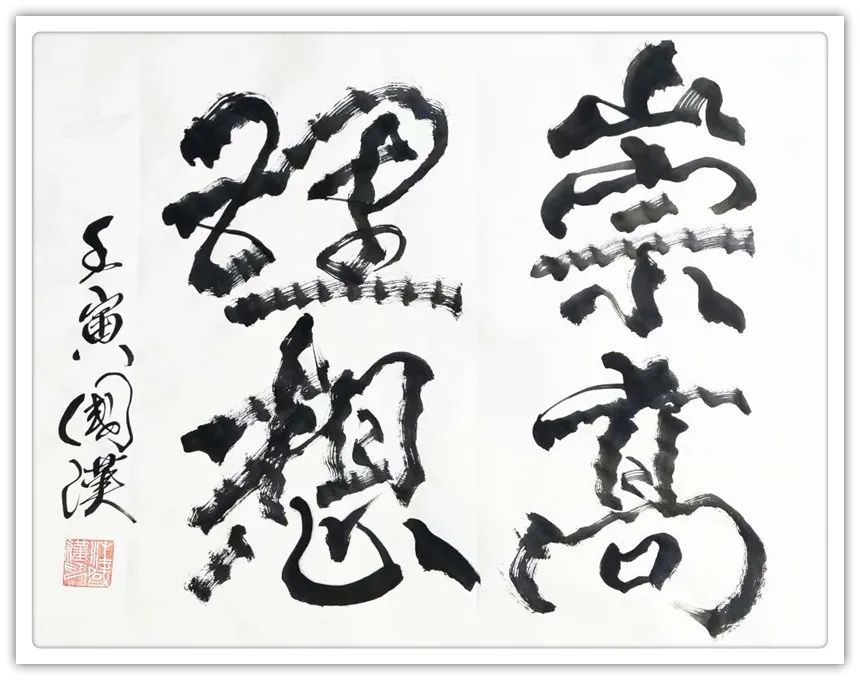 崇高
理想
壬寅國漢